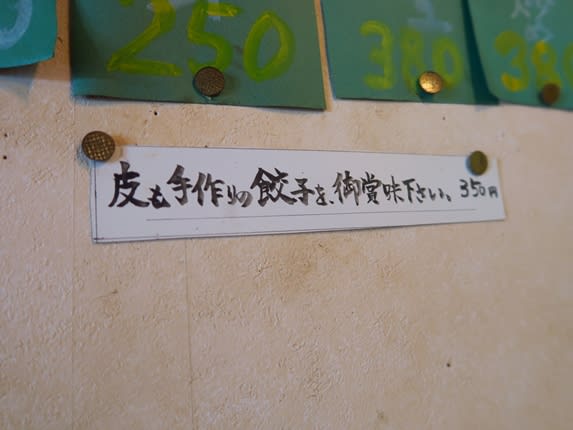 250
380
380
皮も手作りの餃子を、御賞味下さい。350円